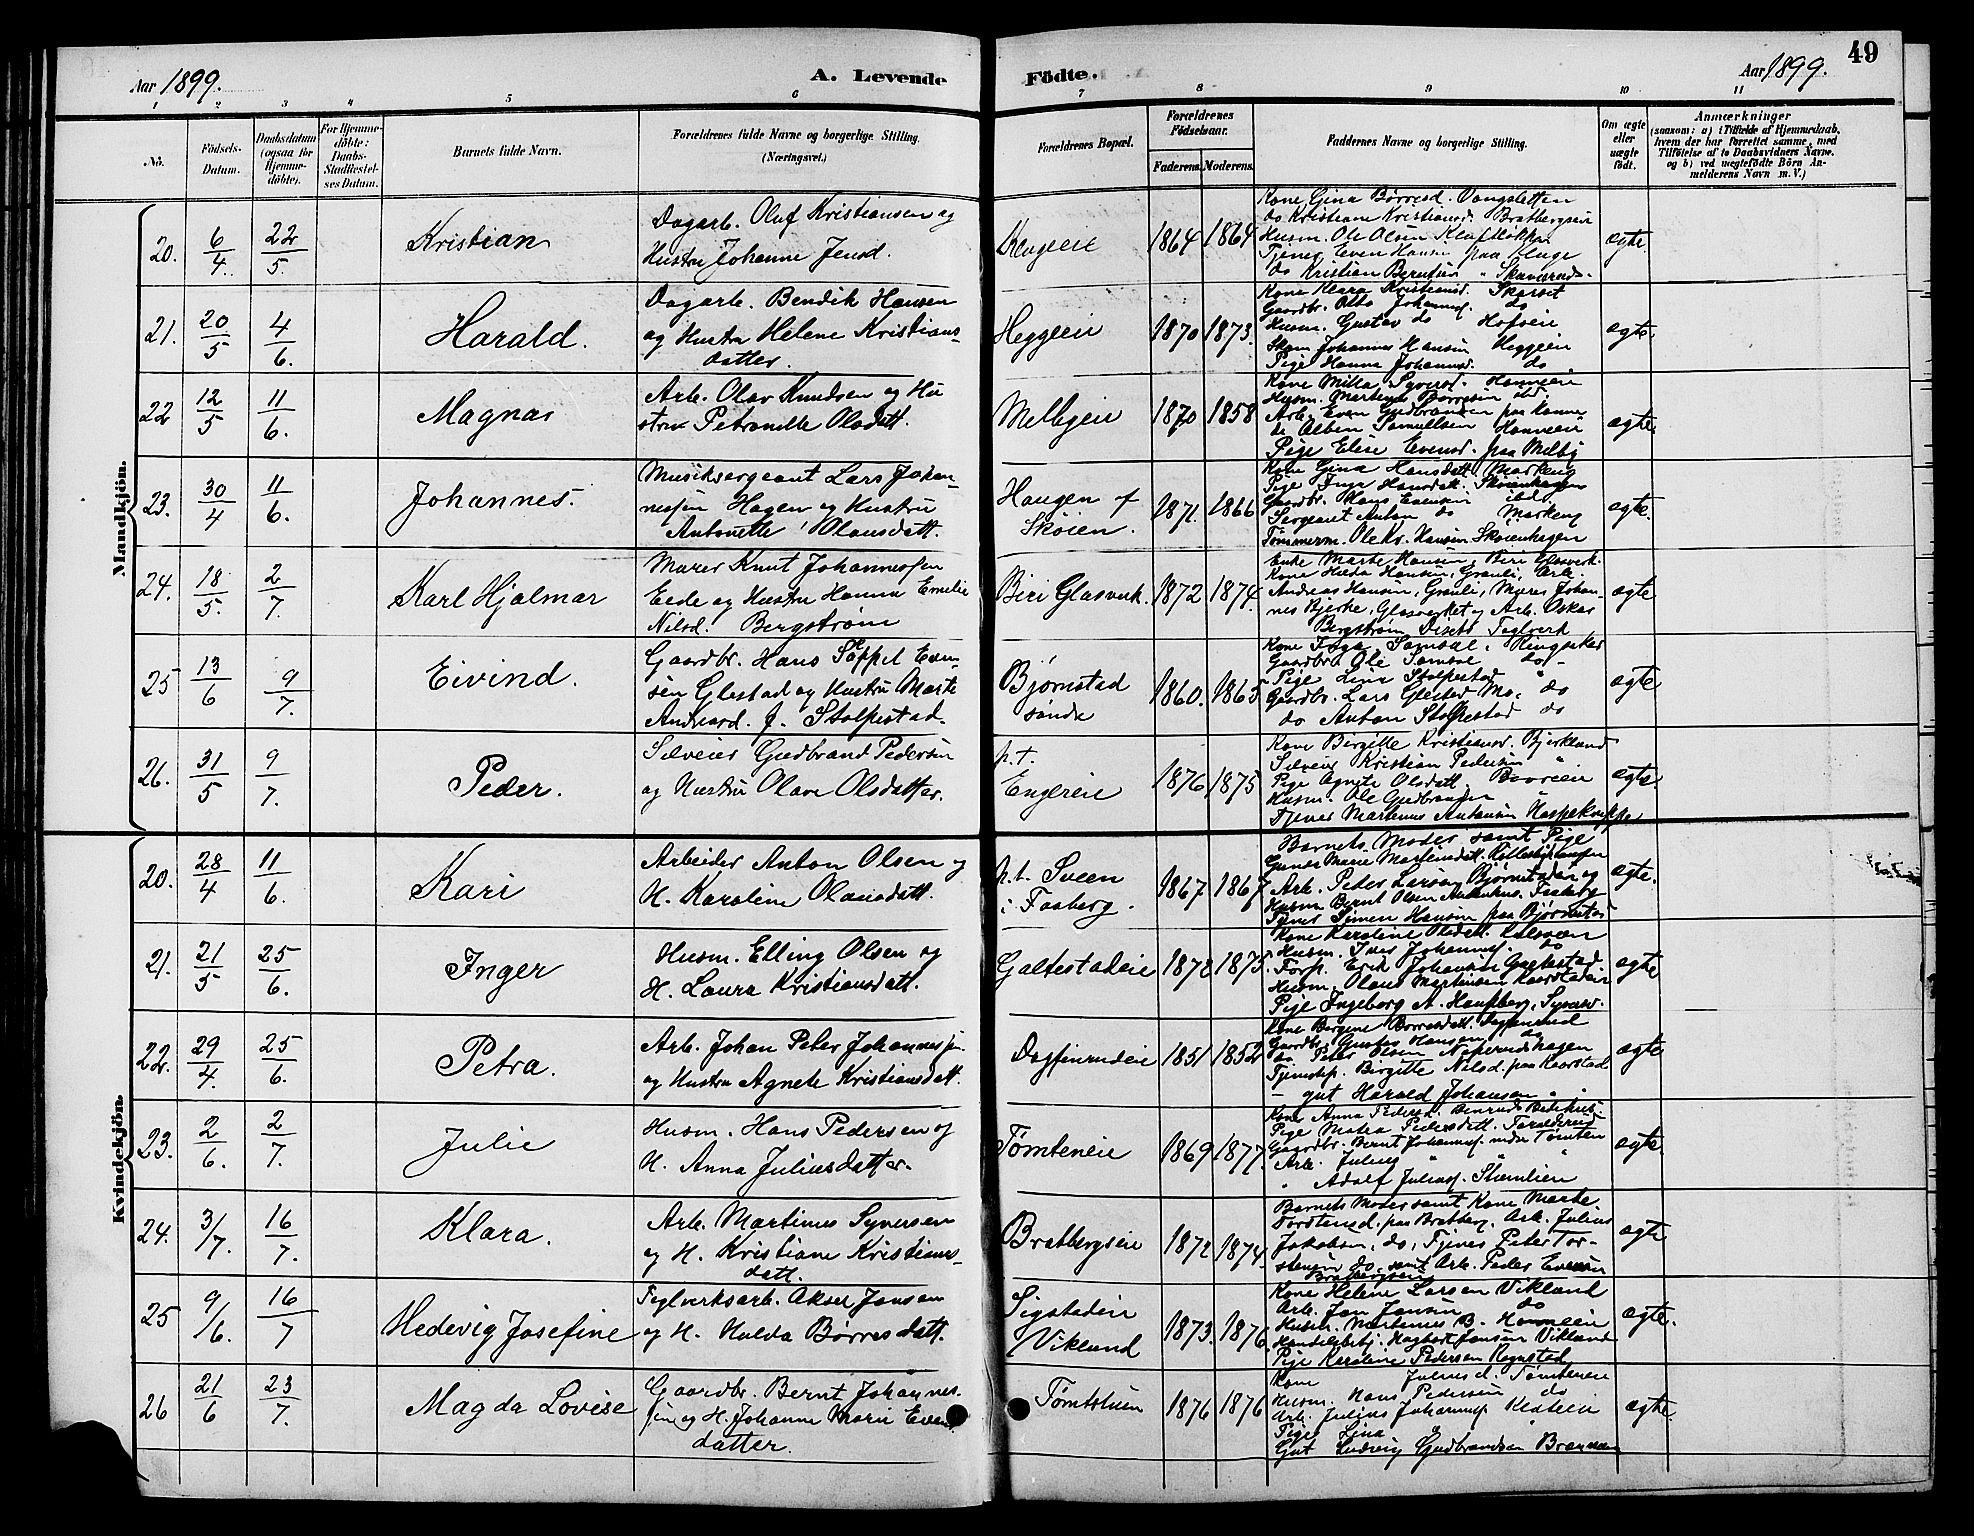 49
Aar 1899.
A. Levende
Födte.
Aar 1899.
1 2 3 4 5 6 7 8 9 10 11
No.
Födsels-
Datum.
Daabsdatum
(ogsaa for
Hjemme-
döbte).
For Hjemme-
döbte:
Daabs-
Stadfæstel-
ses Datum.
Barnets fulde Navn.
Forældrenes fulde Navne og borgerlige Stilling.
(Næringsvei.)
Forældrenes Bopæl.
Forældrenes
Födselsaar.
Faderens. Moderens.
Faddernes Navne og borgerlige Stilling.
Om ægte
eller
uægte
födt.
Anmærkninger
(saasom: a) i Tilfælde af Hjemmedaab,
hvem der har forrettet samme, med
Tilföielse af to Daabsvidners Navne,
og b) ved uægtefödte Börn An-
melderens Navn m. V.)
Mandkjön.
20. 6/4. 22/5. Kristian
Dagarb. Oluf Kristiansen og
Hustru Johanne Jensd.
Klugeeie 1864 1864
Kone Gina Børresd. Vangsletten
do Kristiane Kristiansd. Bratbergseie
Husm. Ole Olsen
Tjener Even Hansen paa Kluge
do Kristian Berntsen
ægte
21. 20/5 4/6. Harald.
Dagarb. Bendik Hansen
og Hustru Helene Kristians-
datter.
Heggeeie 1870 1873.
Kone Klara Kristiansd. Skarset
Gaardbr. Otto Johannesf. do
Husm. Gustav do Hofseie
Skom. Johannes Hansen Heggeeie
Pige Hanna Johannesd. do
ægte
22 12/5 11/6. Magnus
Arb. Olav Knudsen og Hu
stru Petronelle Olsdatt.
Melbyeie 1870 1858
Kone Milla Syversd. Honneeie
Husm. Martenus Børresen ibd.
Arb. Even Gudbrandsen paa Honne
do Alben Samuelsen Honneeie
Pige Elise Evensd. paa Melby
ægte.
23. 30/4 11/6. Johannes.
Musiksergeant Lars Johan-
nessen Hagen og Hustru
Antonette Olausdatt.
Haugen af
Skøien. 1871. 1866
Kone Gina Hansdatt. Markeng
Pige Inga Hansdatt. Skøienhagen
Gaardbr. Hans Evensen ibd.
Sergeant Anton do Markeng
Tømmerm. Ole Kr. Hansen Skøienhagen
ægte.
24. 18/5. 2/7. Karl Hjalmar
Murer Knut Johannessen
Eede og Hustru Hanna Emelie
Nilsd. Bergstrøm
Biri Glasverk. 1872 1874.
Enke Marte Hansen, Biri Glasverk.
Kone Hilda Hansen, Granli, Arb.
Andreas Hansen, Granli, Murer Johan-
nes Bjerke, Glasverket og Arb. Oskar
Bergstrøm Diseth Teglverk
ægte
25 13/6 9/7. Eivind.
Gaardbr. Hans Støppel Even-
sen Glestad og Hustru Marte
Andreasd. f. Stolpestad.
Bjørnstad
søndre 1860. 1865
Kone Inga Samdal i Ringsaker
Gaardbr. Ole Samdal do
Pige Lina Stolpestad
Gaardbr. Lars Glestad Mo, do
do Anton Stolpestad do
ægte
26. 31/5 9/7. Peder.
Sølveier Gudbrand Pedersen
og Hustru Olave Olsdatter.
p.t.
Engereie 1876 1875
Kone Birgitte Kristiansd. Bjerkland
Kristian Pedersen
Pige Agnete Olsdatt.
Husm. Ole Gudbrandsen
Tjener Martenus Antonsen
ægte.
Kvindekjön.
20. 28/4 11/6. Kari
Arbeider Anton Olsen og
H. Karoline Olausdatt.
p.t. Sveen
i Faaberg. 1867. 1867
Barnets Moder samt Pige
Marie Martinsdatt.
Arb. Peter Larsen Bjørnstaden og
Husm. Bernt Olsen Faaberg
Tjener Simen Hansen paa Bjørnstad
ægte.
21. 21/5 25/6. Inger
Husm. Elling Olsen og
H. Laura Kristiansdatt.
Galtestadeie 1872 1875.
Kone Karoline Olsdatt.
Husm. Iver Johannesf. do
Forp. Erik Johansen Galtestad
Husm. Olaus Martinsen Kaarstadeie
Pige Ingeborg A. Haugberg, Sy
ægte
22. 29/4. 25/6. Petra.
Arb. Johan Peter Johannessen
og Hustru Agnete Kristiansdatt.
Dagfinrudeie 1851 1852
Kone Bergine Børresdatt. Dagfinrud
Gaardbr. Gustav Hansen do
do Peter Olsen Neperudshagen
Tjenestep. Birgitte Nilsd. paa Kaarstad
- gut Harald Johansen "
ægte
23. 2/6. 2/7. Julie
Husm. Hans Pedersen og
H. Anna Juliusdatter.
Tømteneie 1869 1877.
Kone Anna Pedersd.
Pige Matea Pedersdatt.
Gaardbr. Bernt Johannesf. nedre Tømten
Arb. Julius " " "
" Adolf Juliusf. Stumlien
ægte.
24. 3/7. 16/7. Klara.
Arb. Martinus Syversen
og H. Kristiane Kristians-
datt.
Bratbergseie 1872 1874.
Barnets Moder samt Kone Marte
Torstensd. paa Bratberg, Arb. Julius
Jakobsen, do, Tjener Peter Tor-
stensen do, samt Arb. Peder Evensen
Bratbergseie
ægte
25 9/6. 16/7 Hedevig Josefine
Teglverksarb. Aksel Jansen
og H. Hulda Børresdatt.
Sigstadeie
Viklund 1873. 1876.
Kone Helene Larsen Vikland
Arb. Jan Jansen do
Husm. Martenus B. Honneeie
Handelsbetj. Hagbart Jansen Vikland
Pige Karoline Pedersen Rognstad
ægte.
26 21/6 23/7. Magda Lovise
Gaardbr. Bernt Johannes-
sen og H. Johanne Marie Evens
datter.
Tømtstuen 1876 1876
Kone Juliusd. Tømteneie
Husm. Hans Pedersen do
Arb. Julius Johannesf.
Pige Lina
Gut Ludvig Gudbrandsen
ægte.